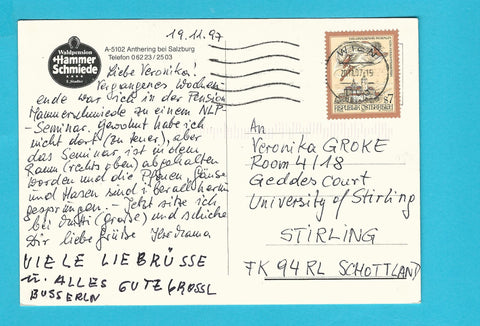 19.11.97
Waldpension
Hammer
Schmiede
A-5102 Anthering bei Salzburg
Telefon 0 62 23 / 25 03
Liebe Veronika!
Vergangenes Wochen-
ende war ich in der Pension
Hammerschmiede zu einem NLP-
-Seminar. Gewohnt habe ich
nicht dort (zu teuer), aber
das Seminar ist in dem
Raum (rechts oben) abgehalten
worden und die Pfauen, Gänse
und Hasen sind überall herum
gesprungen. - Jetzt sitze ich
bei und schicke
Dir liebe Grüße Ilsemama
VIELE LIEBRÜSSE
u. ALLES GUTE GROSSL
BUSSERLN
WIEN
REPUBLIK ÖSTERREICH
S7
An
Veronika GROKE
Room 4/18
Geddes Court
University of Stirling
STIRLING
FK 94RL SCHOTTLAND